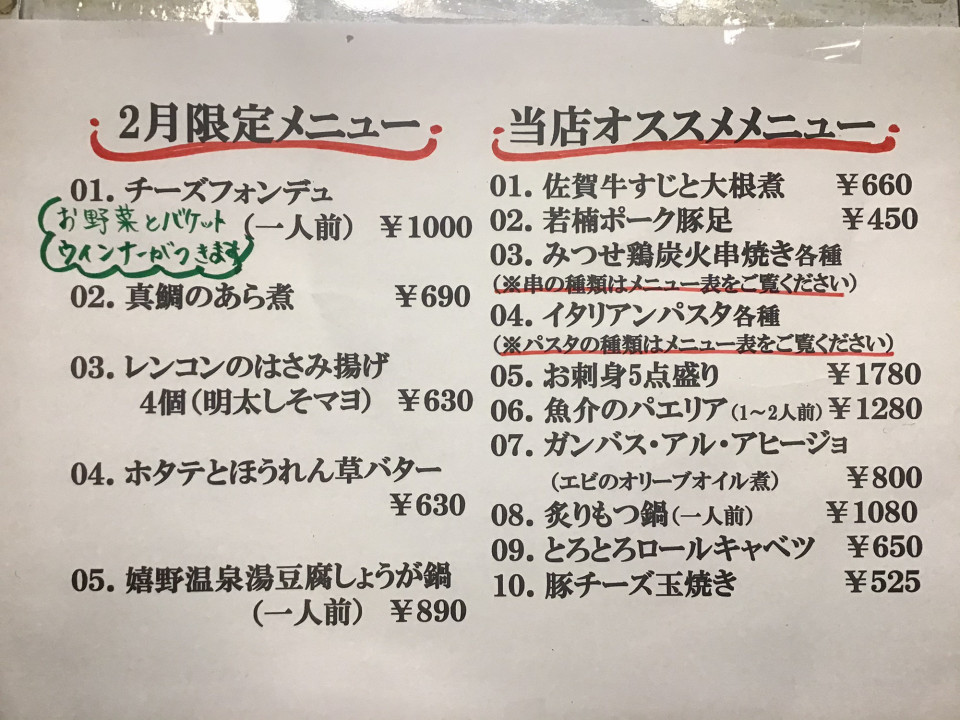 2月限定メニュー
01. チーズフォンデュ
お野菜とバケット
ウインナーがつきます
(一人前) ￥1000
02. 真鯛のあら煮 ￥690
03. レンコンのはさみ揚げ
4個(明太しそマヨ) ￥630
04. ホタテとほうれん草バター
￥630
05. 嬉野温泉湯豆腐しょうが鍋
(一人前) ￥890
当店オススメメニュー
01. 佐賀牛すじと大根煮 ￥660
02. 若楠ポーク豚足 ￥450
03. みつせ鶏炭火串焼き各種
(※串の種類はメニュー表をご覧ください)
04. イタリアンパスタ各種
(※パスタの種類はメニュー表をご覧ください)
05. お刺身5点盛り ￥1780
06. 魚介のパエリア(1～2人前) ￥1280
07. ガンバス・アル・アヒージョ
(エビのオリーブオイル煮) ￥800
08. 炙りもつ鍋(一人前) ￥1080
09. とろとろロールキャベツ ￥650
10. 豚チーズ玉焼き ￥525